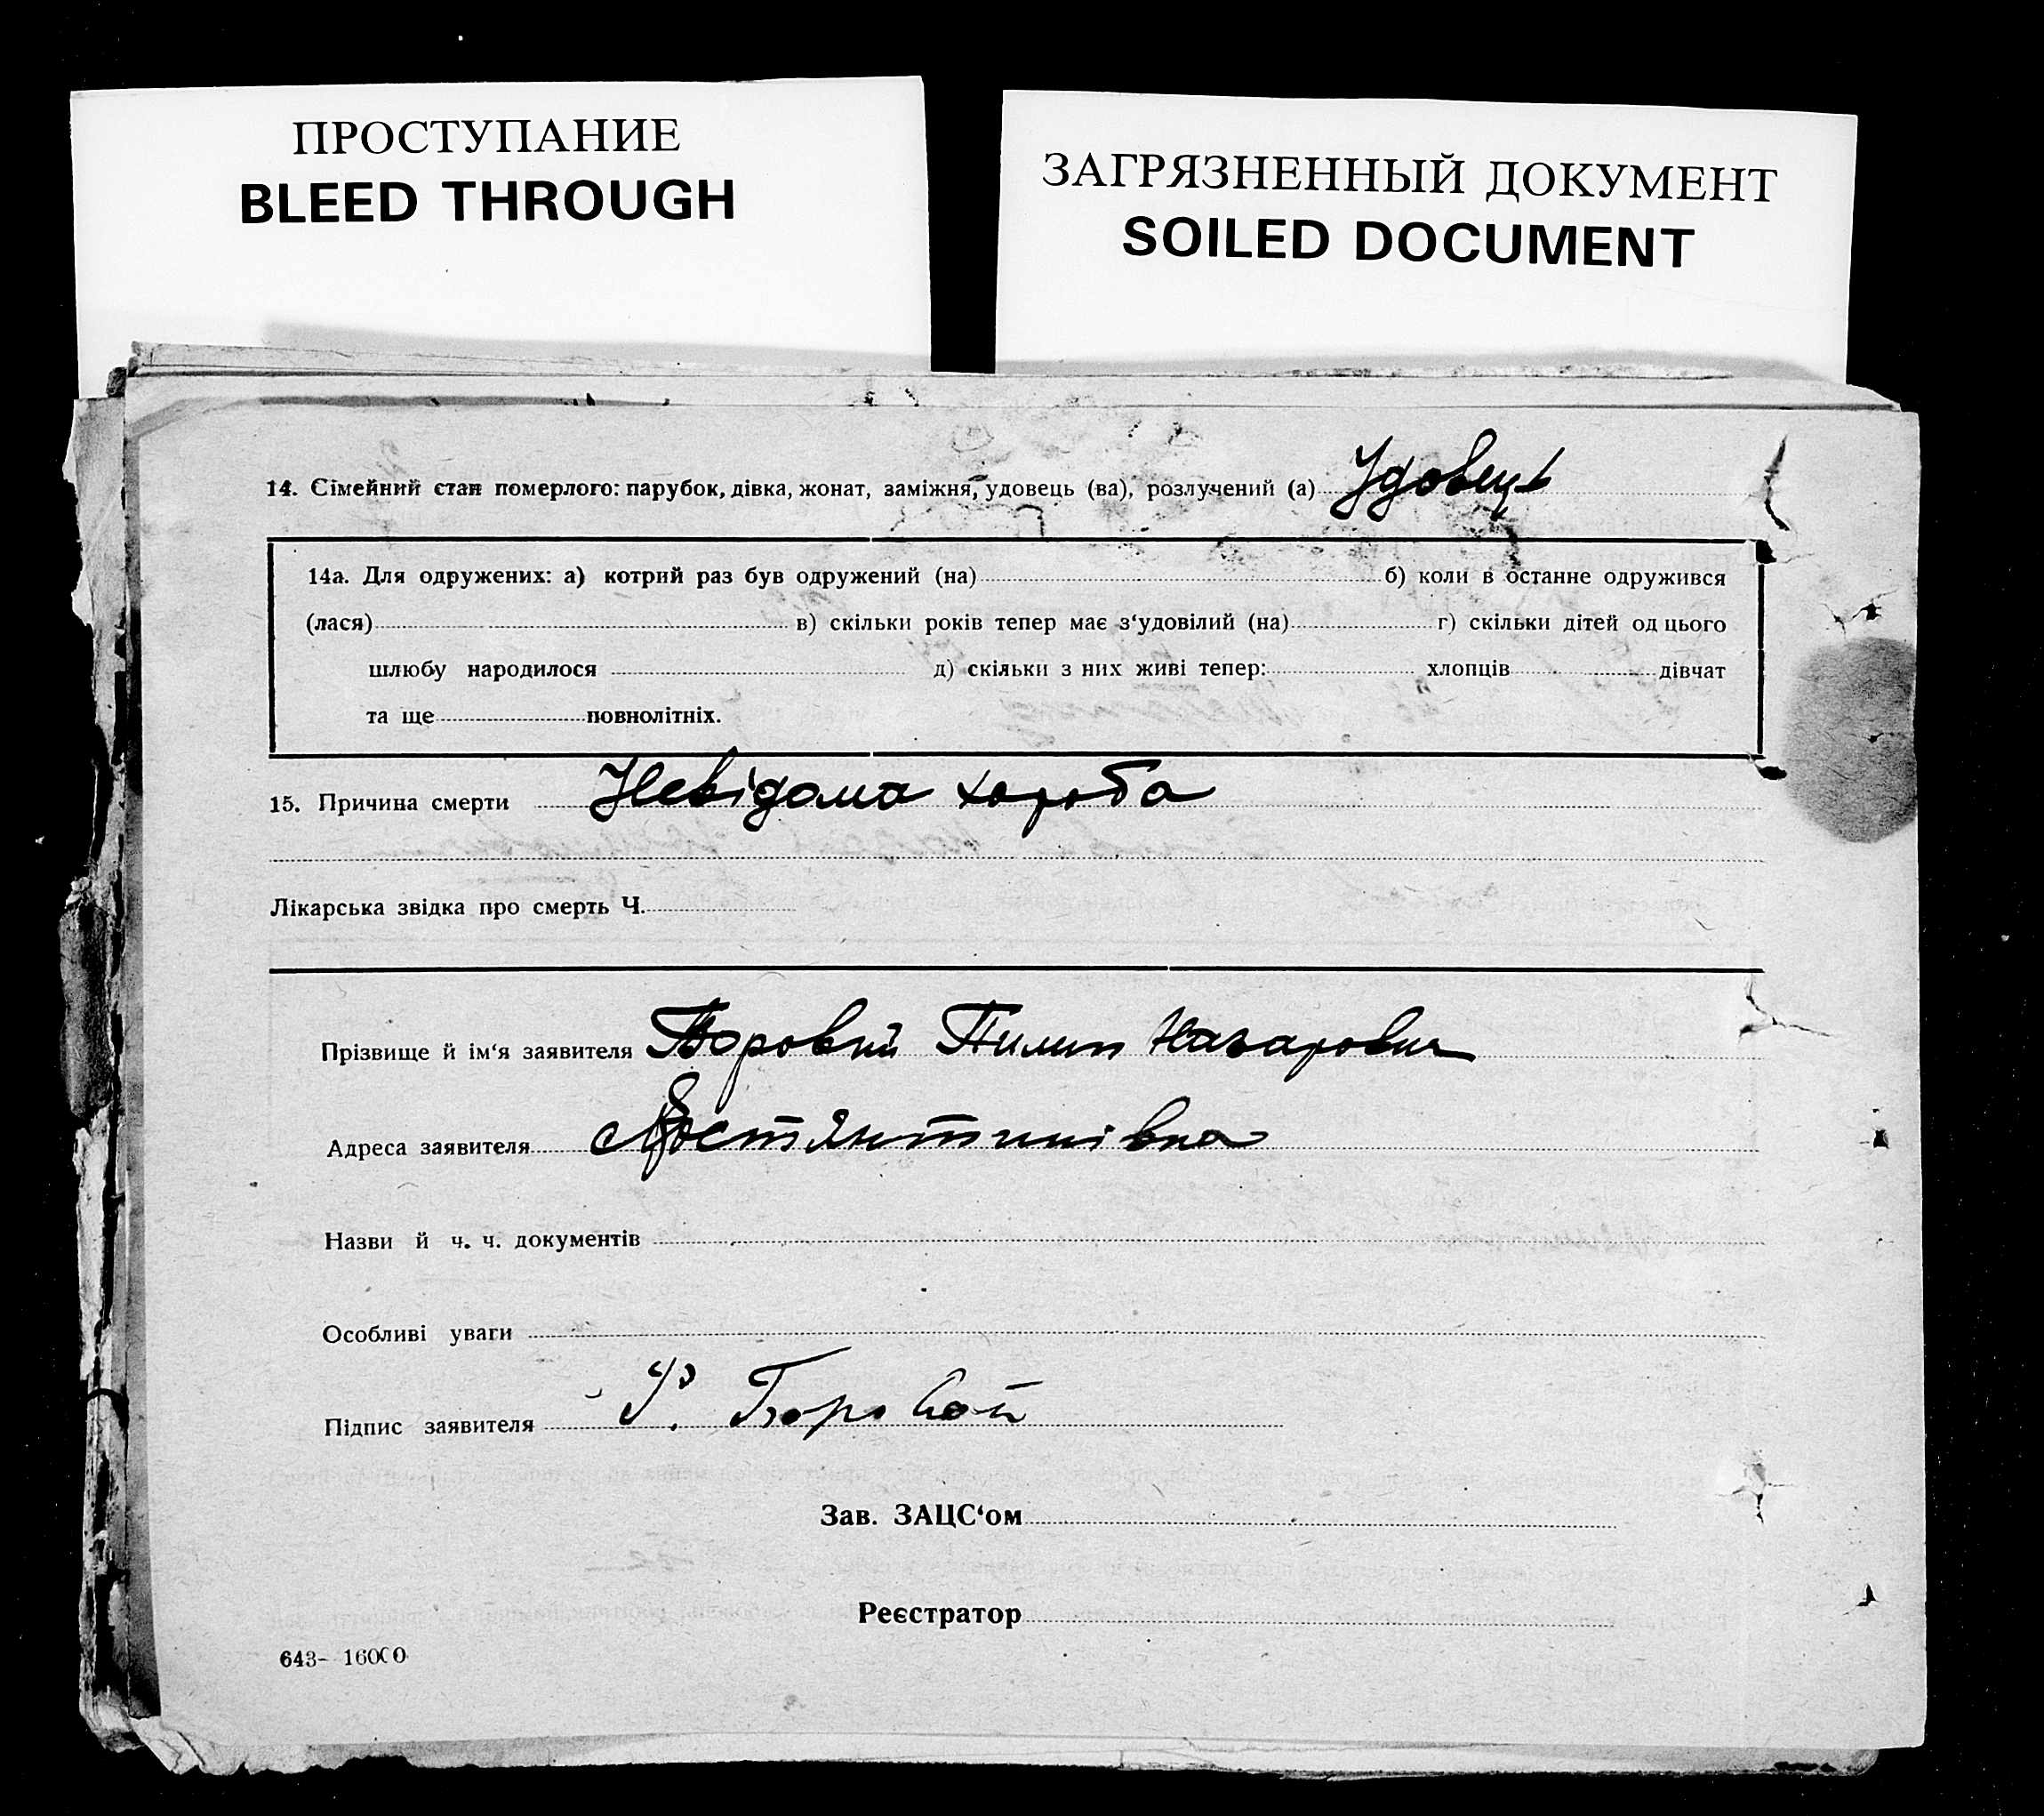 ПРОСТУПАНИЕ
BLEED THROUGH
ЗАГРЯЗНЕННЫЙ ДОКУМЕНТ
SOILED DOCUMENT
14. Сімейний стан померлого: парубок, дівка, жонат, заміжня, удовець (ва), розлучений (а) Удовець
14а. Для одружених: а) котрий раз був одружений (на) б) коли в останне одружився
(лася) в) скільки років тепер має з‘удовілий (на) г) скільки дітей од цього
шлюбу народилося д) скільки з них живі тепер: хлопців дівчат
та ще повнолітніх.
15. Причина смерти Невідома хороба
Лікарська звідка про смерть Ч.
Прізвище й ім‘я заявителя Боровий Пилип Назарович
Адреса заявителя
Назви й ч. ч. документів
Особливі уваги
Підпис заявителя Ф. Боровой
Зав. ЗАЦС‘ом
Реєстратор
643- 16000